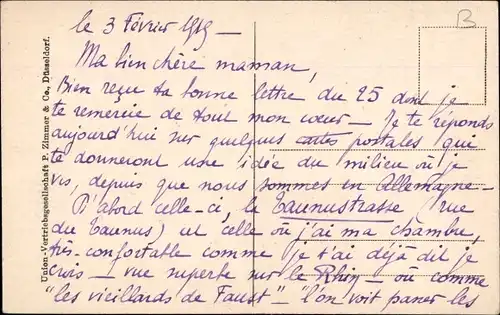 le 3 Février 1919 —
B
Ma bien chère maman,
Bien reçu ta bonne lettre du 25 dont je
te remercie de tout mon cœur — Je te réponds
aujourd'hui sur quelques cartes postales qui
te donneront une idée du milieu où je
vis, depuis que nous sommes en Allemagne —
D'abord celle-ci, le Taunustrasse (rue
du Taunus) est celle où j'ai ma chambre,
très confortable comme je t'ai déjà dit je
crois — vue superbe sur le Rhin — où comme
"les vieillards de Faust" — "l'on voit passer les
Union-Vertriebsgesellschaft P. Zimmer & Co., Düsseldorf.